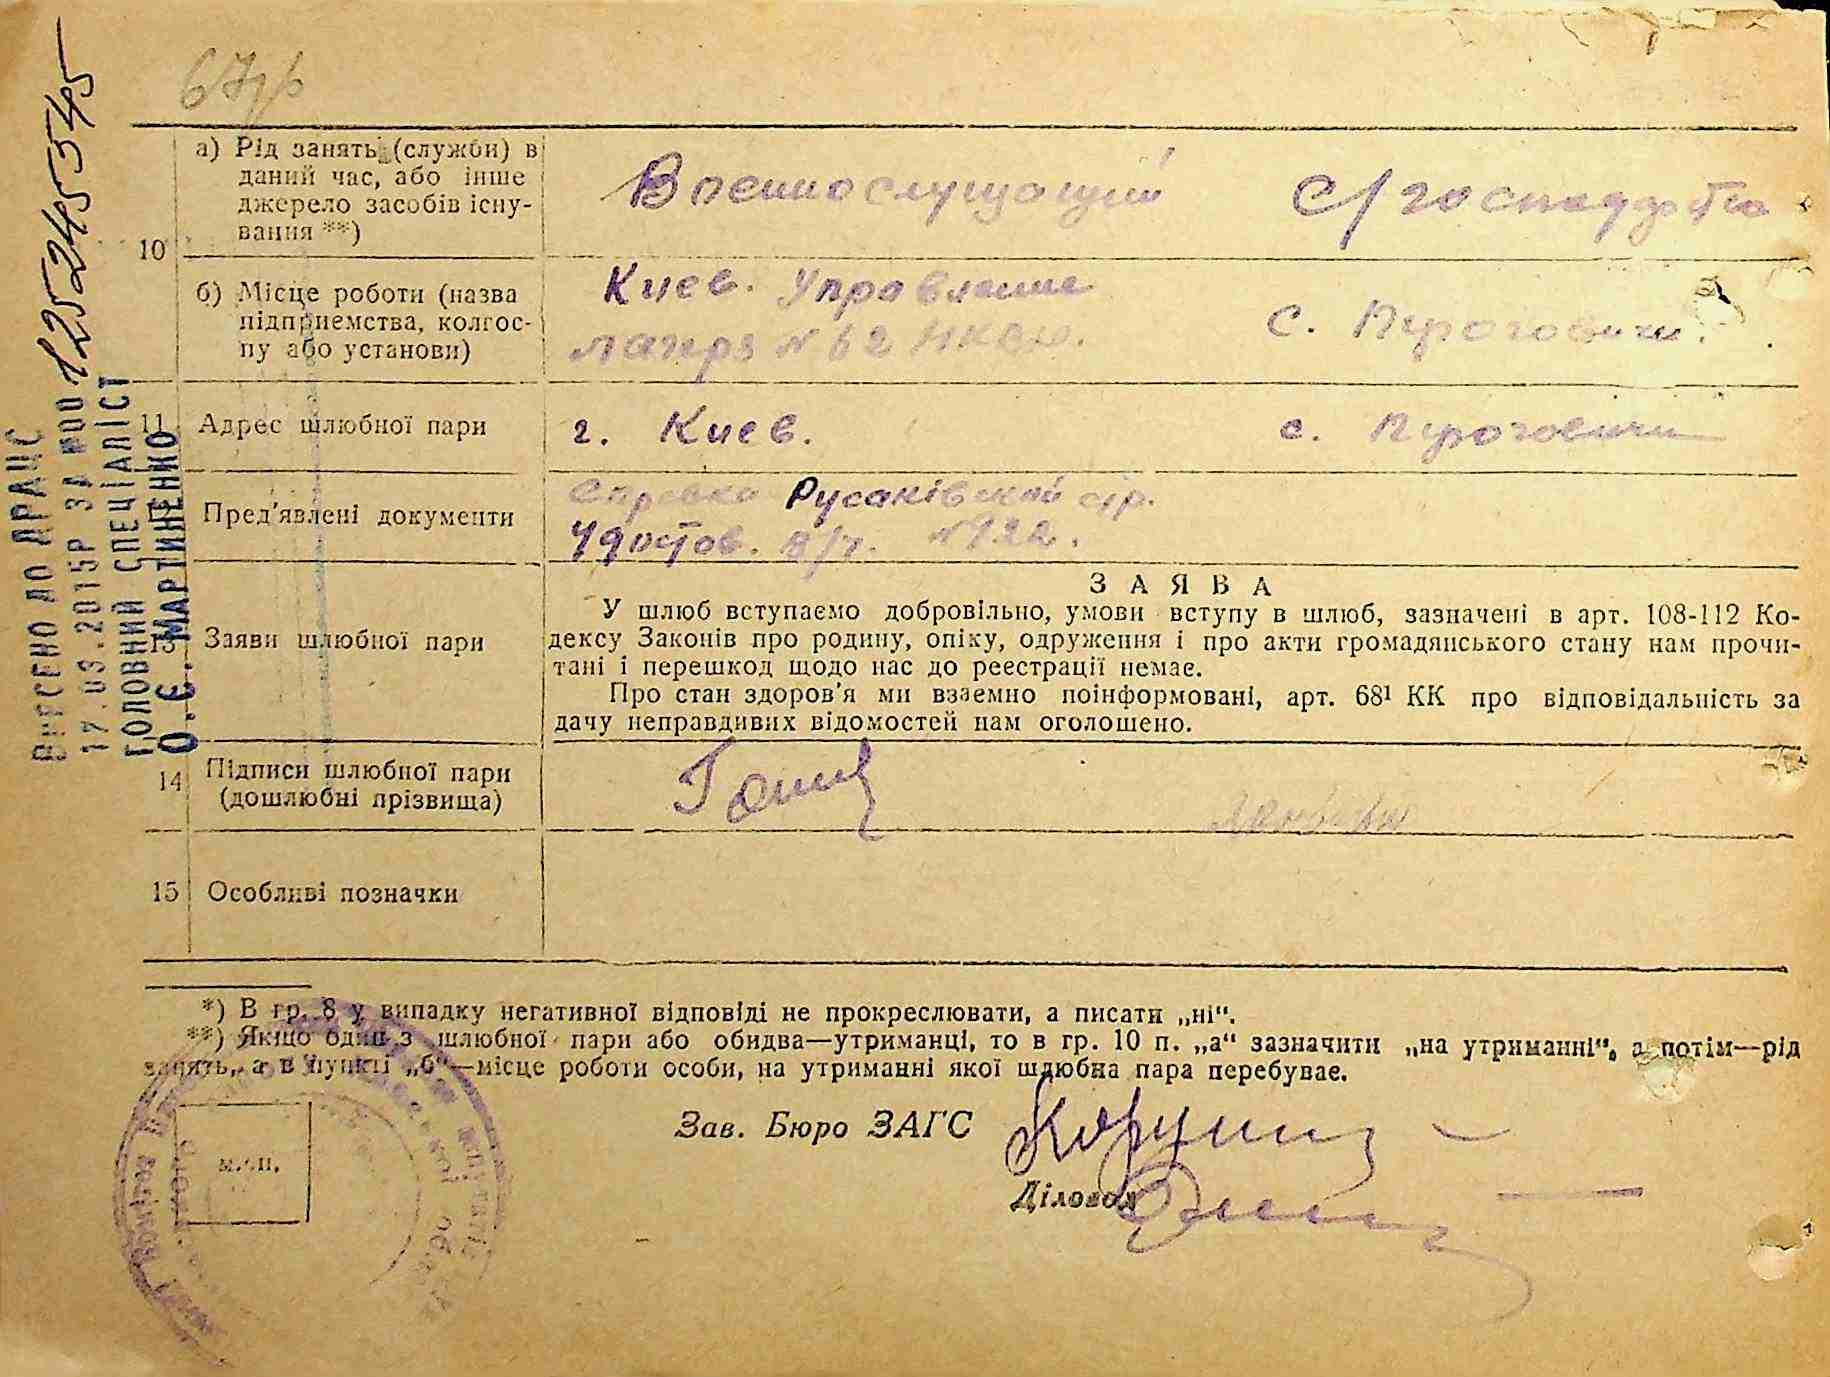 а) Рід занять (служби) в
даний час, або інше
джерело засобів існу-
вання **)
10
Военнослущащий
С/господарство
б) Місце роботи (назва
підприємства, колгос-
пу або установи)
Киев. Управление
лагеря № 62 НКВД.
с. Пироговичи.
11
Адрес шлюбної пари
г. Киев.
с. Пироговичи
Пред'явлені документи
Справка Русанівской с/р.
Удостов. в/ч. №922.
Заяви шлюбної пари
ЗАЯВА
У шлюб вступаємо добровільно, умови вступу в шлюб, зазначені в арт. 108-112 Ко-
дексу Законів про родину, опіку, одруження і про акти громадянського стану нам прочи-
тані і перешкод щодо нас до реестрації немає.
Про стан здоров'я ми взаємно поінформовані, арт. 68¹ КК про відповідальність за
дачу неправдивих відомостей нам оголошено.
14
Підписи шлюбної пари
(дошлюбні прізвища)
15
Особливі позначки
*) В гр. 8 у випадку негативної відповіді не прокреслювати, а писати „ні“.
**) Якщо один з шлюбної пари або обидва—утриманці, то в гр. 10 п. „а“ зазначити „на утриманні“, а потім—рід
занять, а в пункті „б“—місце роботи особи, на утриманні якої шлюбна пара перебуває.
Зав. Бюро ЗАГС
Діловод
м. п.
ВНЕСЕНО ДО ДРАЦС
17.03.2015Р ЗА №00125245345
ГОЛОВНИЙ СПЕЦІАЛІСТ
О.Є.МАРТИНЕНКО